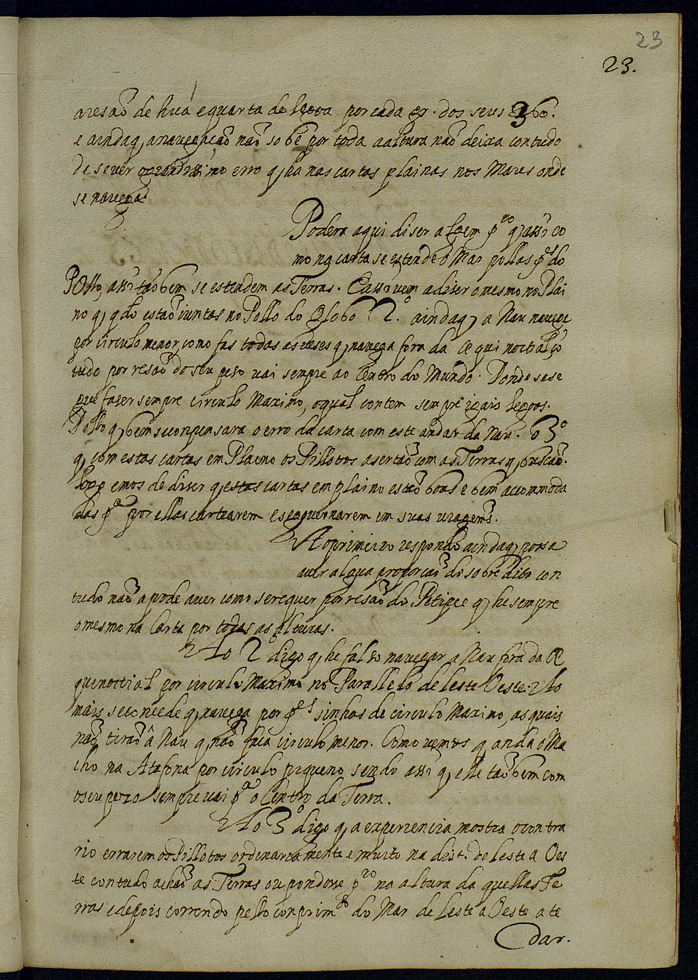 23
23.
aresaõ de huã e quarta de legoa por cada gr. dos seus 360.
e aindaq̃ a navegação não so bẽ por toda a altura não deixa contudo
de se ver grandissimo erro q̃ ha nas cartas plainas nos Mares onde
se navega.
Podera aqui diser alguem pro q̃ assi co
mo na carta se estende o Mar pellas pes do
Pollo, assi tãobem se estendem as Terras. E assi vem a diser o mesmo no Plai
no q̃ qdo estão iuntas no Pollo do Globo 2.º aindaq̃ a Nau navegue
por circulo menor, como fas todas as veses q̃ navega fora da Equinoctial, cõ
tudo por resaõ do seu peso vai sempre ao Centro do Mundo. Donde se se
gue faser sempre circulo Maximo, o qual contem sempre iguais legoas.
Pello q̃ bem se conpensara o erro da carta com este andar da Nau. O 3º
q̃ com estas cartas em Plaino os Pillotos asertão com as Terras q̃ buscaõ.
Logo emos de diser q̃ estas cartas em plaino estão boas e bem accommoda
das pa por ellas cartearem e se governarem em suas viagens.
Ao primeiro respondo aindaq̃ possa
aver algũa proporcaõ do sobre dito con
tudo não a pode aver como se requer por resaõ do Petipee q̃ he sempre
o mesmo na Carta por todas as alturas.
Ao 2º digo q̃ he falso navegar a Nau fora da E
quinoctial por circulo Maximo no Parallelo de Leste Oeste. Ao
mais se concede q̃ navega por pes linhas de circulo Maximo, as quais
não tirão â Nau q̃ não faca circulo menor. Como vemos q̃ anda o Ma
cho na Atafona por circulo pequeno, sendo assi q̃ elle tãobem com
o seu pezo sempre vai pa o Centro da Terra.
Ao 3º digo q̃ a experiencia mostra o contra
rio errarem os Pillotos ordinariamente e muito na dist. de Leste a Oes
te contudo achaõ as Terras ou pondose pro na altura da quellas Te
rras e depois correndo pello conprimto do Mar de Leste a Oeste ate
dar.